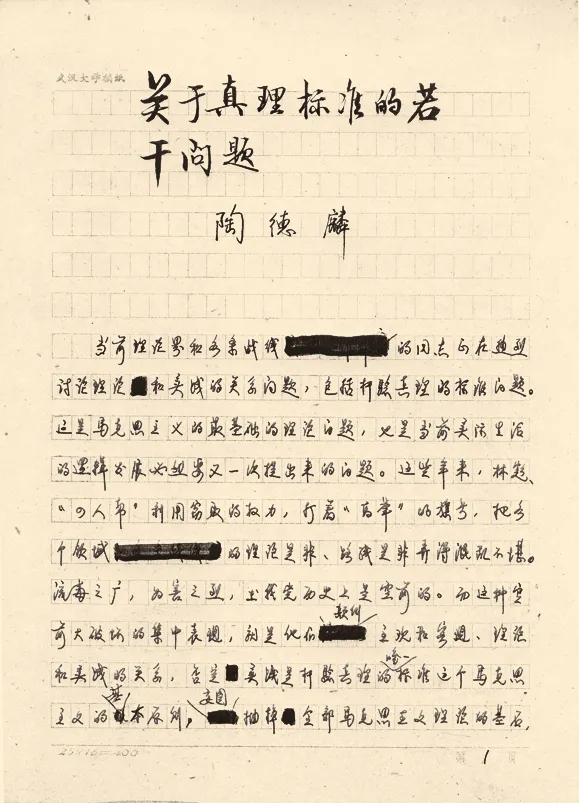 武汉大学稿纸
关于真理标准的若
干问题
陶德麟
当前理论界和各条战线的同志正在热烈
讨论理论和实践的关系问题，包括检验真理的标准问题。
这是马克思主义的最基础的理论问题，也是当前实际生活
的逻辑发展必然要又一次提出来的问题。这些年来，林彪、
“四人帮”利用窃取的权力，打着“高举”的旗号，把各
个领域的理论是非、路线是非弄得混乱不堪。
流毒之广，为害之烈，在我党历史上是空前的。而这种空
前大破坏的集中表现，就是他们主观和客观、理论
和实践的关系，否定实践是检验真理的唯一标准这个马克思
主义的基本原则，妄图抽掉全部马克思主义理论的基石，
25×16=400 第 1 页